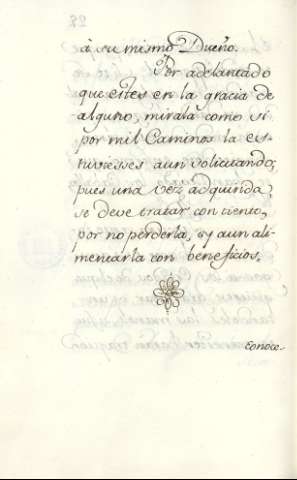 à su mismo Dueño.
Por adelantado
que estes en la gracia de
alguno, mirala como si
por mil Caminos la es-
tuviesses aun solicitando;
pues una vez adquirida,
se deve tratar con tiento,
por no perderla, y aun ali-
mentarla con beneficios.
Conoce-